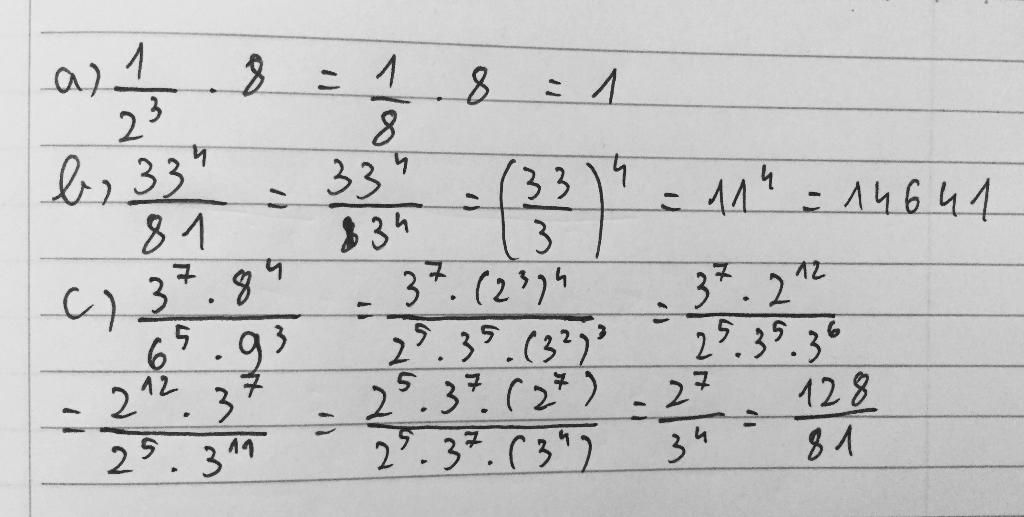 a) 1/2³ · 8 = 1/8 · 8 = 1
b) 33⁴/81 = 33⁴/3⁴ = (33/3)⁴ = 11⁴ = 14641
c) 3⁷ · 8⁴/6⁵ · 9³ = 3⁷ · (2³)⁴/2⁵ · 3⁵ · (3²)³ = 3⁷ · 2¹²/2⁵ · 3⁵ · 3⁶
= 2¹² · 3⁷/2⁵ · 3¹¹ = 2⁵ · 3⁷ · (2⁷)/2⁵ · 3⁷ · (3⁴) = 2⁷/3⁴ = 128/81